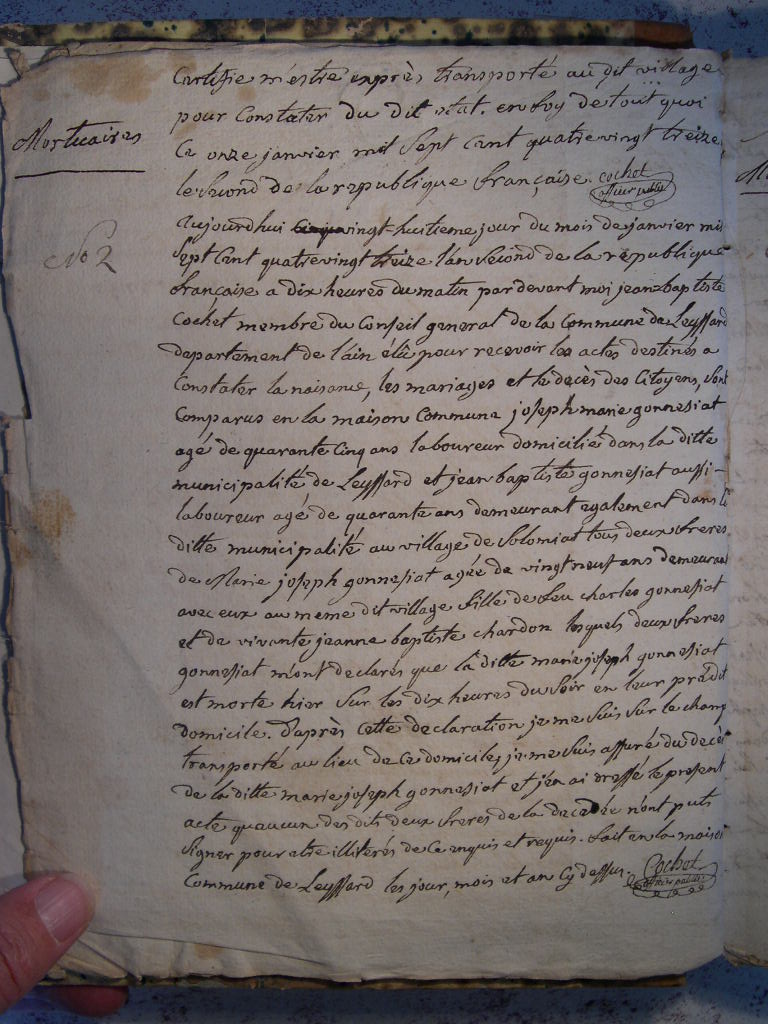 Certifie m'estre exprès transporté au dit village
pour Constater du dit état. en foy de tout quoi
Mortuaires
Ce onze janvier mil Sept Cent quatrevingt treize,
le Second de la republique française. Cochet
officier public
No 2
aujourdhui vingt huitieme jour du mois de janvier mil
Sept Cent quatrevingt treize l'an Second de la republique
française a dix heures du matin pardevant moi jean baptiste
Cochet membre du Conseil general de la Commune de Leyssard
departement de l'ain élû pour recevoir les actes destinés a
Constater la naisance, les mariages et le decès des Citoyens, sont
Comparus en la maison Commune joseph marie gonnesiat
agé de quarante Cinq ans laboureur domicilié dans la ditte
municipalité de Leyssard et jean baptiste gonnesiat aussi-
laboureur agé de quarante ans demeurant egalement dans la
ditte municipalité au village de Solomiat tous deux freres
de Marie joseph gonnesiat agée de vingt neuf ans demeurant
avec eux au meme dit village fille de feu charles gonnesiat
et de vivante jeanne baptiste chardon lesquels deux freres
gonnesiat m'ont declarés que la ditte marie joseph gonnesiat
est morte hier Sur les dix heures du Soir en leur prédit
domicile. d'après cette declaration je me suis sur le champ
transporté au lieu de Ce domicile, je me suis assuré du decès
de la ditte marie joseph gonnesiat et j'en ai dressé le present
acte qu'aucun des dits deux freres de la decedée n'ont puts
Signer pour etre illiterés de Ce enquis et requis. fait en la maison
Commune de Leyssard les jour, mois et an Cy dessus. Cochet
officier public